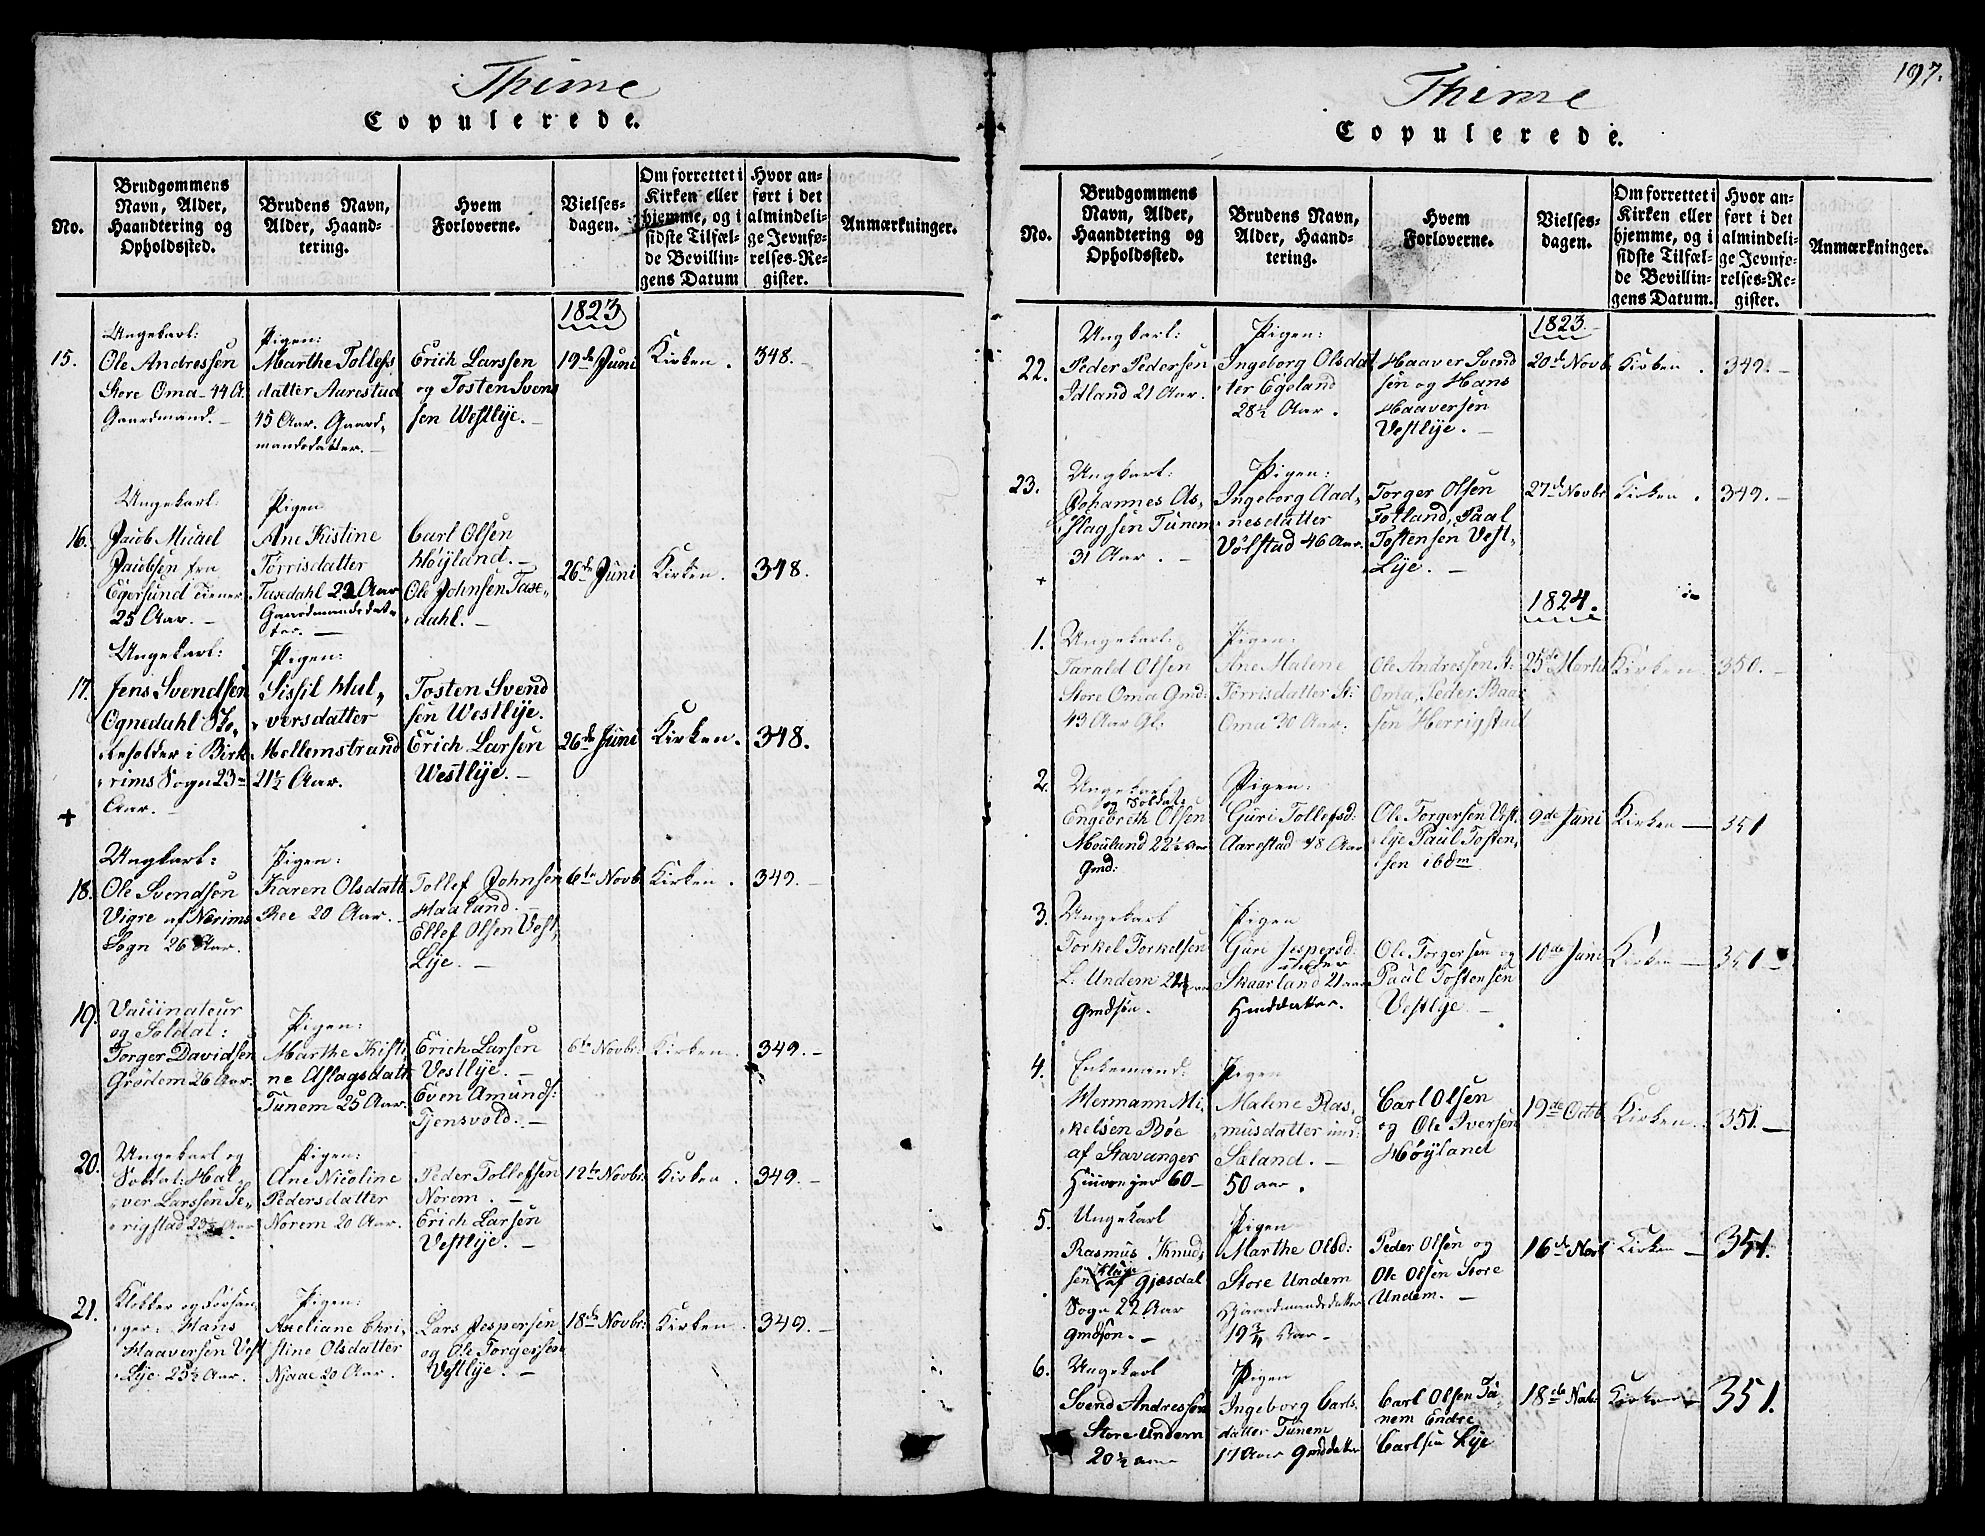 Thime
Copulerede.
No.
Brudgommens
Navn, Alder,
Haandtering og
Opholdssted.
Brudens Navn,
Alder, Haand-
tering.
Hvem
Forloverne.
Vielses-
dagen.
Om forrettet i
Kirken eller
hjemme, og i
sidste Tilfæl-
de Bevillin-
gens Datum
Hvor an-
ført i det
almindeli-
ge Jevnfø-
relses-Re-
gister.
Anmærkninger.
1823
15.
Ungekarl:
Ole Andressen
Store Oma 44 A.
Gaardmand.
Pigen:
Marthe Tollefs
datter Aarestad
45 Aar. Gaard,
mandsdatter.
Erich Larssen
og Tosten Svens
sen Westlye.
19de Juni
Kirken.
348.
16.
Ungekarl:
Jacob Mikael
Jacobsen fra
Egersund Tiener
25 Aar.
Pigen
Ane Kistine
Törrisdatter
Tasedahl 22 Aar
Gaardmandsdat-
ter.
Carl Olsen
Höyland.
Ole Johnsen Tase-
dahl.
26de Juni
Kirken.
348.
17.
Ungekarl:
Jens Svendsen
Ognedahl
holder i Birk
rims Sogn 23
Aar.
Pigen:
Sissil Hul-
versdatter
Mellemstrand
21½ Aar.
Tosten Svend
sen Westlye.
Erich Larsen
Westlye.
26de Juni
Kirken.
348.
+
18.
Ungkarl:
Ole Svendsen
Vigre af Nærims
Sogn 26 Aar.
Pigen:
Karen Olsdatt
Ree 20 Aar.
Tollef Johnsen
Haaland.
Ellef Olsen Vest,
Lye.
6te Novb
Kirken.
349.
19.
Vaccinateur
og Soldat:
Torger Davidsen
Grödem 26 Aar.
Pigen:
Marthe Kisti
ne Aslagsdatt
Tunem 25 Aar.
Erich Larsen
Vestlye.
Even Amunds:
Tjensvold.
6te Novbr:
Kirken.
349.
20.
Ungekarl og
Soldat: Hal-
ver Larssen Se-
rigstad 23½ Aar
Pigen:
Ane Nicoline
Pedersdatter
Norem 20 Aar.
Peder Tollefsen
Norem.
Erich Larsen
Vestlye.
12te Novbr:
Kirken.
349.
21.
Klokker og Forsan-
ger: Hans
Haaversen Vest
Lye 25½ Aar.
Pigen:
Axeliane Chri-
stine Olsdatter
Njaae 20 Aar.
Lars Jespersen
og Ole Torgersen
Vestlye.
18de Novbr:
Kirken.
349.
197.
Thime
Copulerede.
No.
Brudgommens
Navn, Alder,
Haandtering og
Opholdssted.
Brudens Navn,
Alder, Haand-
tering.
Hvem
Forloverne.
Vielses-
dagen.
Om forrettet i
Kirken eller
hjemme, og i
sidste Tilfæl-
de Bevillin-
gens Datum.
Hvor an-
ført i det
almindeli-
ge Jevnfø-
relses-Re-
gister.
Anmærkninger.
1823.
22.
Ungkarl:
Peder Pedersen
Idland 21 Aar.
Pigen:
Ingeborg Olsdat
ter Egeland
28½ Aar.
Haaver Svend
sen og Hans
Haaversen
Vestlye.
20de Novb
Kirken.
349.
23.
Ungkarl:
Johannes As-
slagsen Tunem
31 Aar.
+
Pigen:
Ingeborg Aad,
nesdatter
Völstad 46 Aar.
Torger Olsen
Fotland, Paal
Tostensen Vest,
Lye.
27de Novbr
Kirken.
349.
1824.
1.
Ungekarl:
Tarald Olsen
Store Oma Gmd:
43 Aar Gl:
Pigen:
Ane Malene
Törrisdatter St:
Oma 30 Aar:
Ole Andressen St:
Oma, Peder Baar
sen Herrigstad
25de Marts
Kirken.
350.
2.
Ungekarl
og Soldat:
Engebreth Olsen
22½ Aar
Gmd:
Pigen:
Guri Tollefsd:
Aarestad 48 Aar
Ole Torgersen Vest
lye Paul Tosten,
sen ibdm
9de Juni
Kirken
351
3.
Ungekarl
Torkel Torkelsen
L. Undem 24½ Aar
Gmdsön.
Pigen
Guri Jespersd:
Skaarland 21 aar
Huusdatter.
Ole Torgersen og
Paul Tostensen
Vestlye.
10de Juni
Kirken
351
4.
Enkemand:
Hermann Mi-
kelsen Böe
af Stavanger
60
Pigen
Malene Ras,
musdatter
Sæland.
50 aar.
Carl Olsen
og Ole Iversen
Höyland
19de Octb
Kirken.
351.
5.
Ungekarl
Rasmus Knud,
sen Kluge
af Gjesdal
Sogn 22 Aar
Gmdsön.
Pigen
Marthe Olsd:
Store Undem
Gaardmandsdatter
19¾ Aar
Peder Olsen og
Ole Olsen Store
Undem.
16de Novb
Kirken
351.
6.
Ungekarl
Svend Andressen
Store Undem
20½ Aar
Pigen
Ingeborg Carls
datter Tunem
17 Aar Gmddatter
Carl Olsen Tu-
nem Endre
Carlsen Lye
18de Novb
Kirken
351.